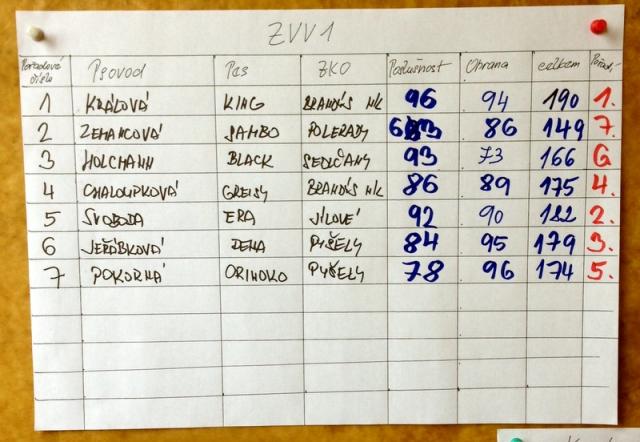 ZVV1
Pořadové číslo Psovod Pes ZKO Poslušnost Obrana celkem Pořad.
1 KRÁLOVÁ KING BRANDÝS N/L 96 94 190 1.
2 ZEMANCOVÁ SAMBO POLERADY 63 86 149 7.
3 HOLCMANN BLACK SEDLČANY 93 73 166 6.
4 CHALOUPKOVÁ GREISY BRANDÝS N/L 86 89 175 4.
5 SVOBODA ERA JÍLOVÉ 92 90 182 2.
6 JEŘÁBKOVÁ PYŠELY 84 95 179 3.
7 POKORNÁ ORINOKO PYŠELY 78 96 174 5.